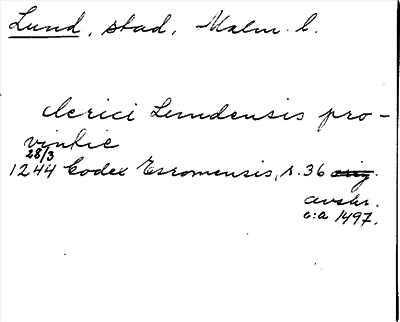 Lund, stad, Malm. l.
clerici Lundensis pro-
vinkie
28/3
1244 Codex Esromensis, s. 36 orig.
avskr.
c:a 1497.